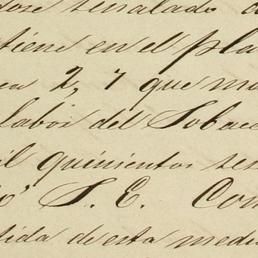 señalado
tiene en el pla
2, 7 que mo
labor del Tobaco
il quinientos ses
S. E. Com
tida de esta medi